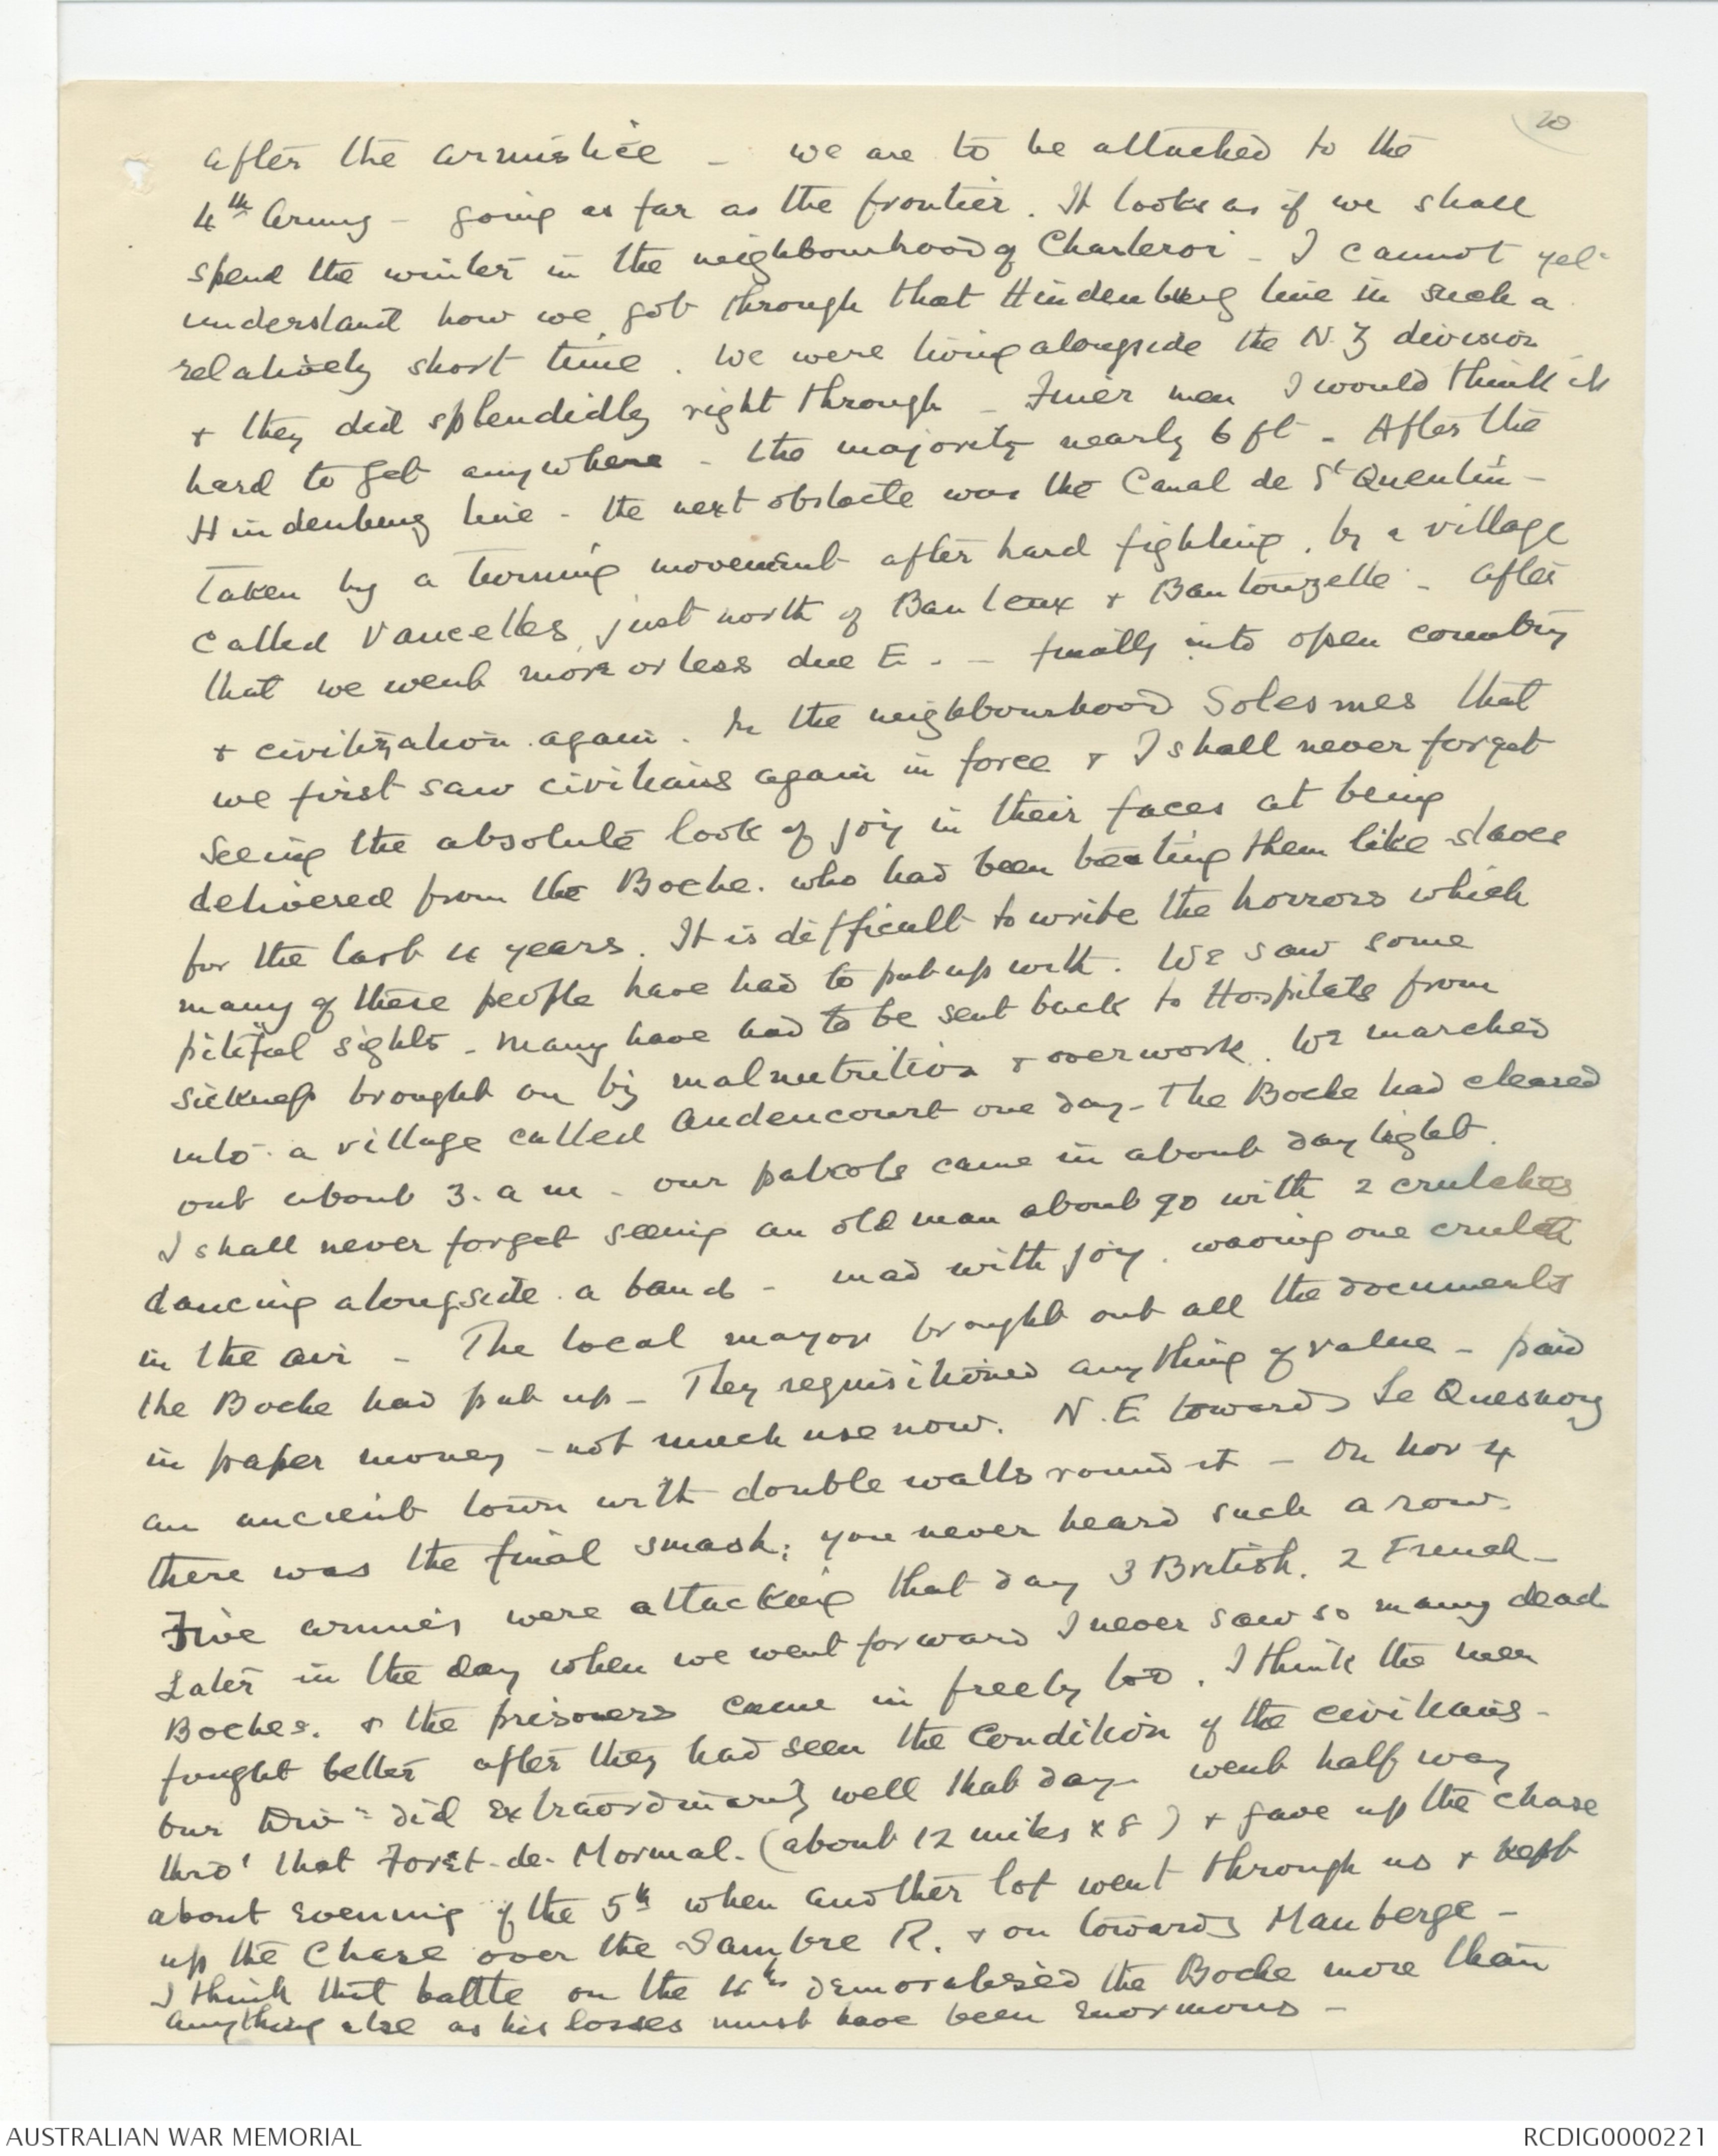 20
after the armistice - we are to be attached to the
4th Army - going as far as the frontier. It looks as if we shall
spend the winter in the neighbourhood of Charleroi - I cannot yet
understand how we got through that Hindenburg line in such a
relatively short time. We were living alongside the N.Z division
& they did splendidly right through - Finer men I would think it
hard to get anywhere - the majority nearly 6 ft - After the
Hindenburg line - the next obstacle was the Canal de St Quentin -
Taken by a turning movement after hard fighting, by a village
called Vaucelles, just north of Banteux & Bantouzelle - after
that we went more or less due E. - finally into open country
& civilization again. In the neighbourhood Solesmes that
we first saw civilians again in force & I shall never forget
seeing the absolute look of joy in their faces at being
delivered from the Boche. who had been beating them like slaves
for the last 4 years. It is difficult to write the horrors which
many of these people have had to put up with. We saw some
pitiful sights - many have had to be sent back to Hospitals from
sickness brought on by malnutrition & overwork. We marched
into a village called Audencourt one day - The Boche had cleared
out about 3. a m - our patrols came in about daylight.
I shall never forget seeing an old man about 90 with 2 crutches
dancing alongside a band - mad with joy. waving one crutch
in the air - The local mayor brought out all the documents
the Boche had put up - They requisitioned anything of value - paid
in paper money - not much use now. N.E towards Le Quesnoy
an ancient town with double walls round it - On Nov 4
there was the final smash; you never heard such a row.
Five armies were attacking that day 3 British. 2 French -
Later in the day when we went forward I never saw so many dead
Boches. & the prisoners came in freely too. I think the men
fought better after they had seen the condition of the civilians -
our Divn did extraordinarily well that day - went half way
thro' that Forêt-de-Mormal. (about 12 miles x 8) & gave up the chase
about evening of the 5th when another lot went through us & kept
up the chase over the Sambre R. & on towards Mauberge -
I think that battle on the 4th demoralised the Boche more than
anything else as his losses must have been enormous -
AUSTRALIAN WAR MEMORIAL
RCDIG0000221